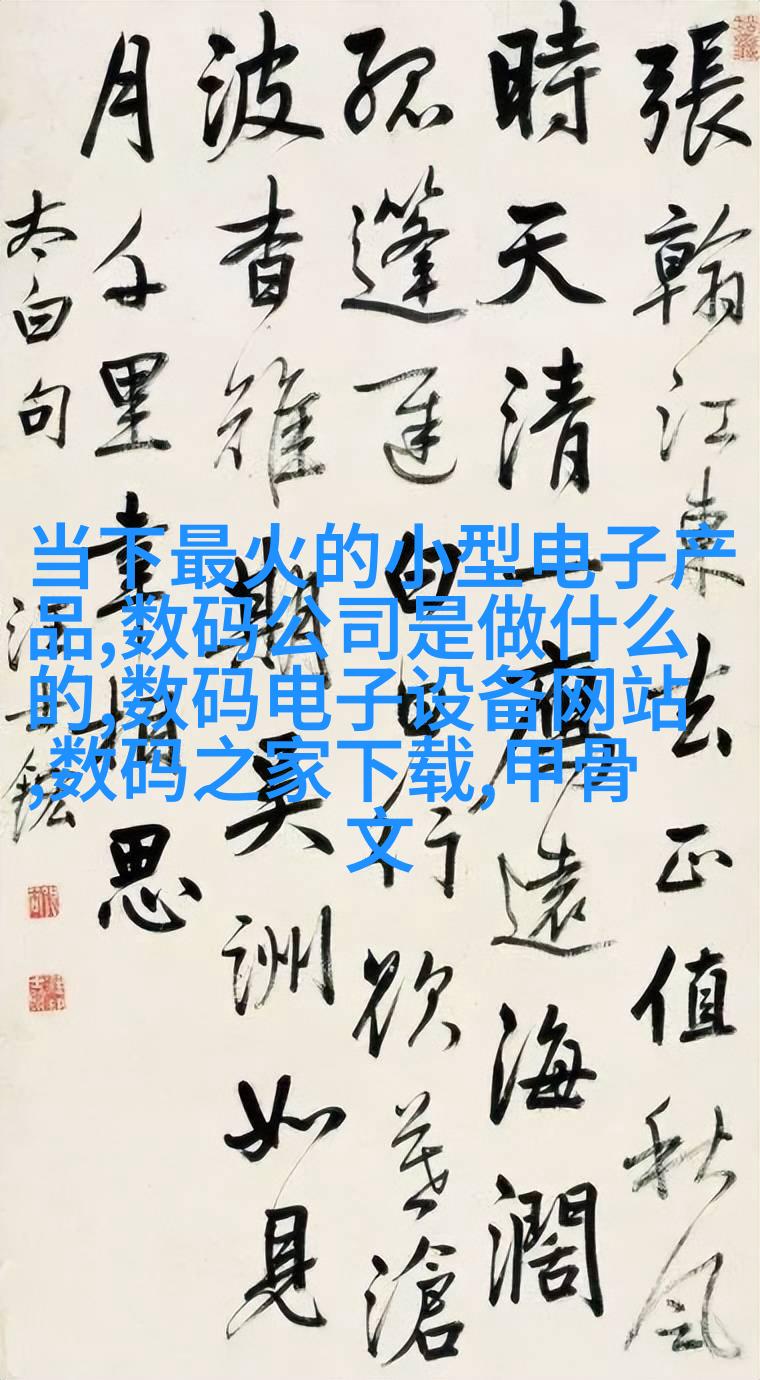 張翰江東去正值秋風
時天清一雁遠海濶
孤蓬遲白日行欲暮滄
波杳難期吳洲如見
月千里幸相思
太白句
汪士鋐
当下最火的小型电子产
品,数码公司是做什么
的,数码电子设备网站
,数码之家下载,甲骨
文